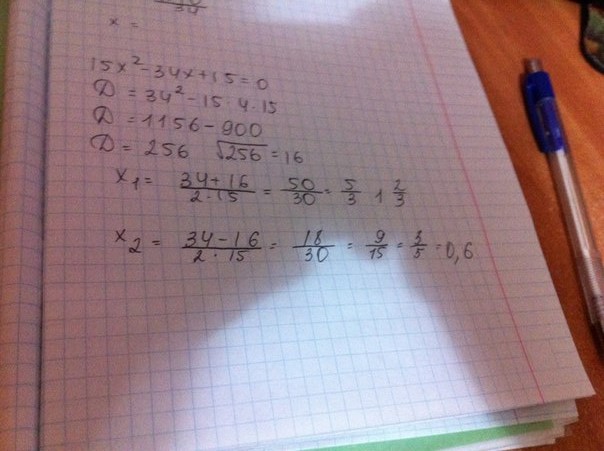 34
x =
15x² - 34x + 15 = 0
D = 34² - 15 · 4 · 15
D = 1156 - 900
D = 256 √256 = 16
x₁ = (34 + 16)/(2 · 15) = 50/30 = 5/3 1 2/3
x₂ = (34 - 16)/(2 · 15) = 18/30 = 9/15 = 3/5 = 0,6